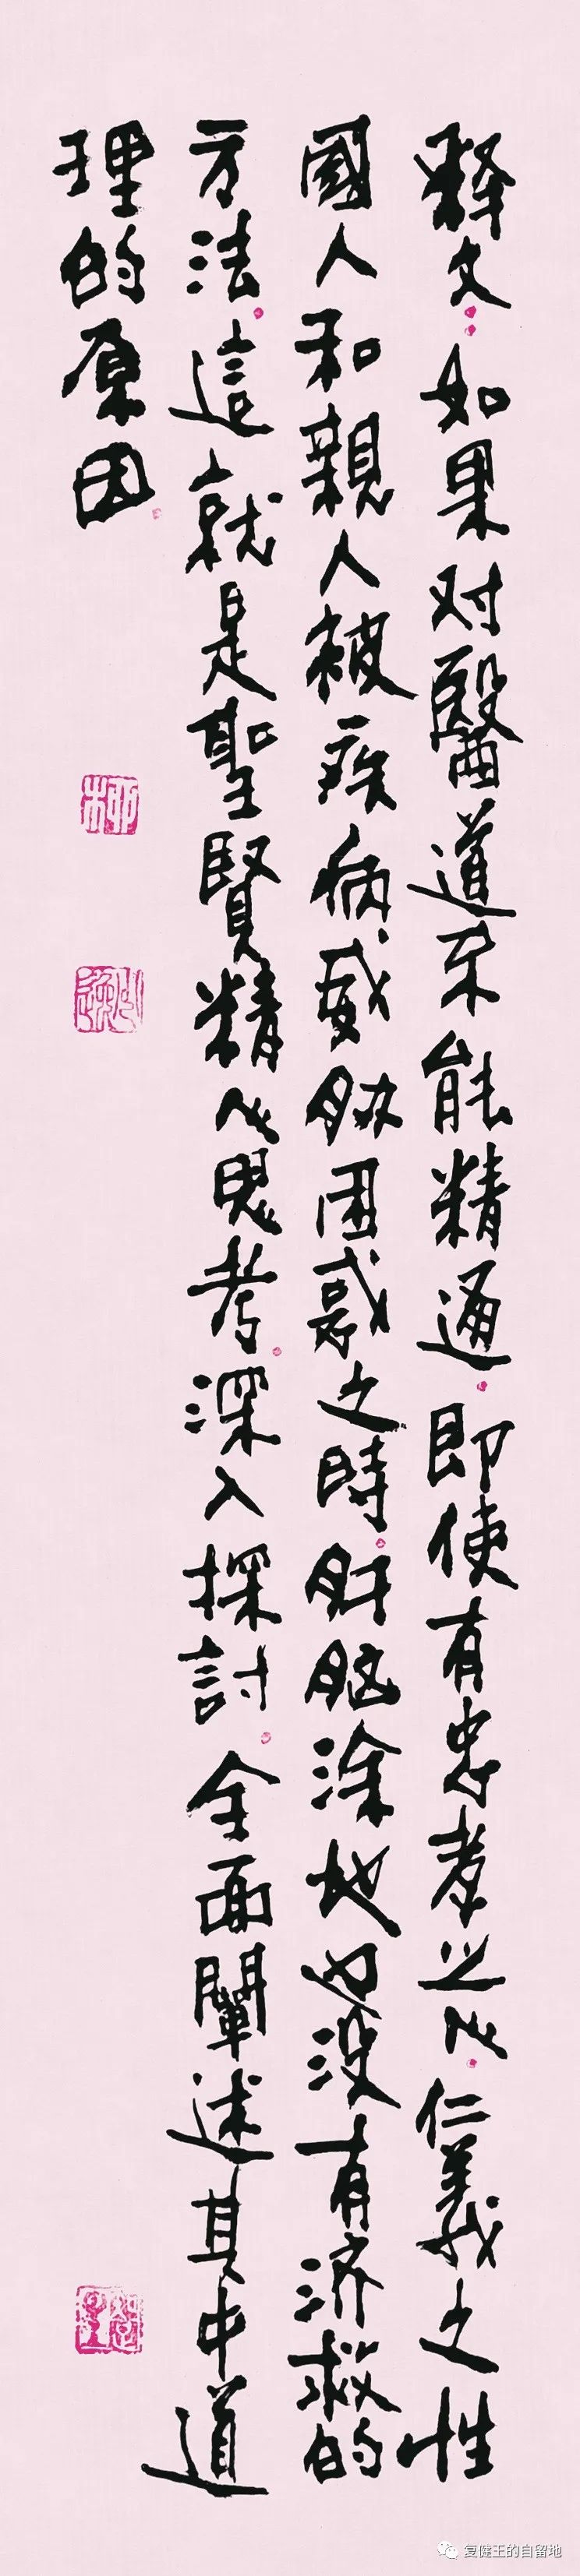 釋文:如果对醫道不能精通。即使有忠孝之心。仁義之性
國人和親人被疾病威胁困惑之時。肝脑涂地也没有济救的
方法。這就是聖賢精心思考。深入探討。全面闡述其中道
理的原因。
柳
复健王的自留地